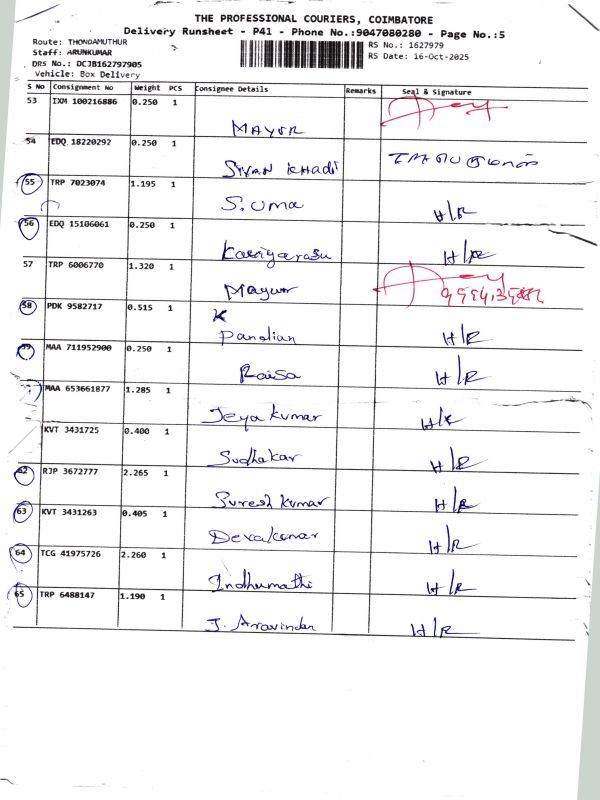 THE PROFESSIONAL COURIERS, COIMBATORE
Delivery Runsheet - P41 - Phone No.:9047080280 - Page No.:5
Route: THONDAMUTHUR
Staff: ARUNKUMAR
DRS No.: DCJB162797905
Vehicle: Box Delivery
RS No.: 1627979
RS Date: 16-Oct-2025
S No Consignment No Weight PCS Consignee Details Remarks Seal & Signature
53 IXM 100216886 0.250 1
Mayur
54 EDQ 18220292 0.250 1
Sivan
55 TRP 7023074 1.195 1
S. Uma H/R
56 EDQ 15106061 0.250 1
H/R
57 TRP 6006770 1.320 1
Mayur
58 PDK 9582717 0.515 1
Pandian H/R
59 MAA 711952900 0.250 1
Raisa H/R
MAA 653661877 1.285 1
Jeyakumar H/R
KVT 3431725 0.400 1
Sudhakar H/R
62 RJP 3672777 2.265 1
Suresh kumar H/R
63 KVT 3431263 0.405 1
Devakumar H/R
64 TCG 41975726 2.260 1
Indhumathi H/R
65 TRP 6488147 1.190 1
J. Aravindan H/R